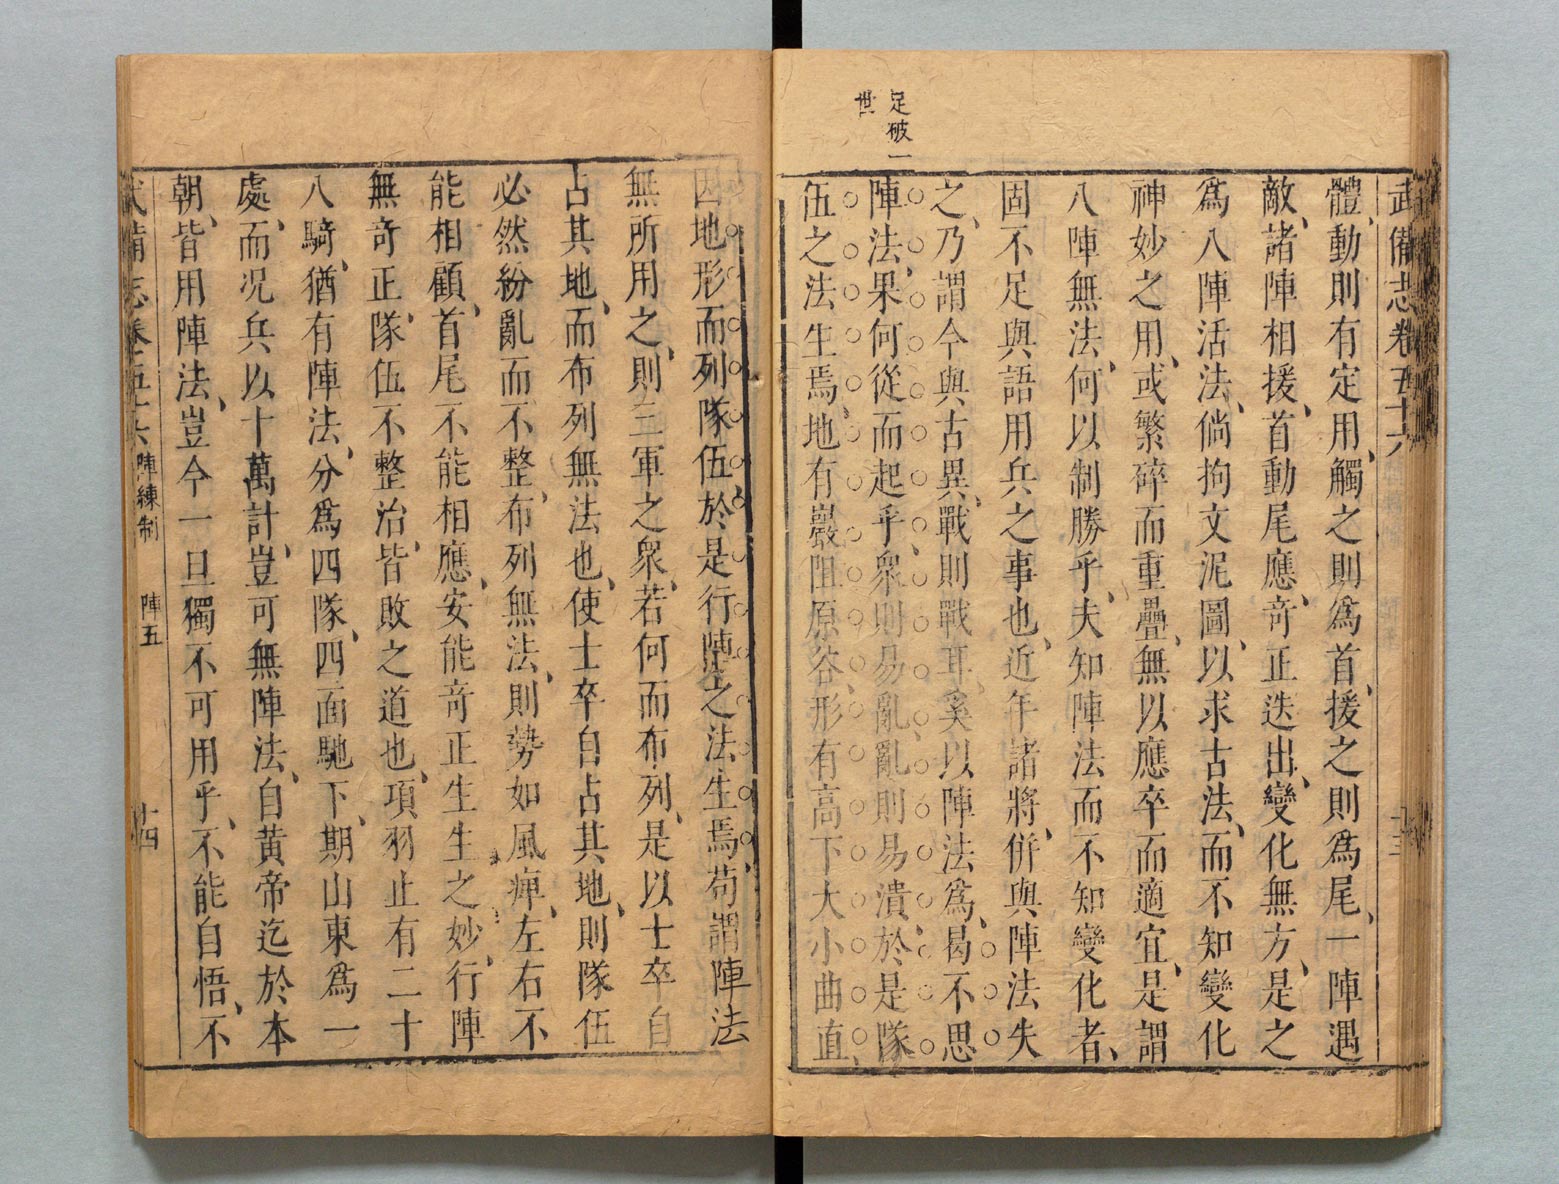 武備志卷五十六
十三
體動則有定用觸之則爲首援之則爲尾一陣遇
敵諸陣相援首動尾應竒正迭出變化無方是之
爲八陣活法倘拘文泥圖以求古法而不知變化
神妙之用或繁碎而重疊無以應卒而適宜是謂
八陣無法何以制勝乎夫知陣法而不知變化者
固不足與語用兵之事也近年諸將併與陣法失
之乃謂今與古異戰則戰耳奚以陣法爲曷不思
陣法果何從而起乎衆則易亂亂則易潰於是隊
伍之法生焉地有巖阻原谷形有高下大小曲直
足破一
世
因地形而列隊伍於是行陣之法生焉苟謂陣法
無所用之則三軍之衆若何而布列是以士卒自
占其地而布列無法也使士卒自占其地則隊伍
必然紛亂而不整布列無法則勢如風痺左右不
能相顧首尾不能相應安能竒正生生之妙行陣
無竒正隊伍不整治皆敗之道也項羽止有二十
八騎猶有陣法分爲四隊四面馳下期山東爲一
處而况兵以十萬計豈可無陣法自黃帝迄於本
朝皆用陣法豈今一旦獨不可用乎不能自悟不
武備志卷五十六 陣練制 陣五 十四